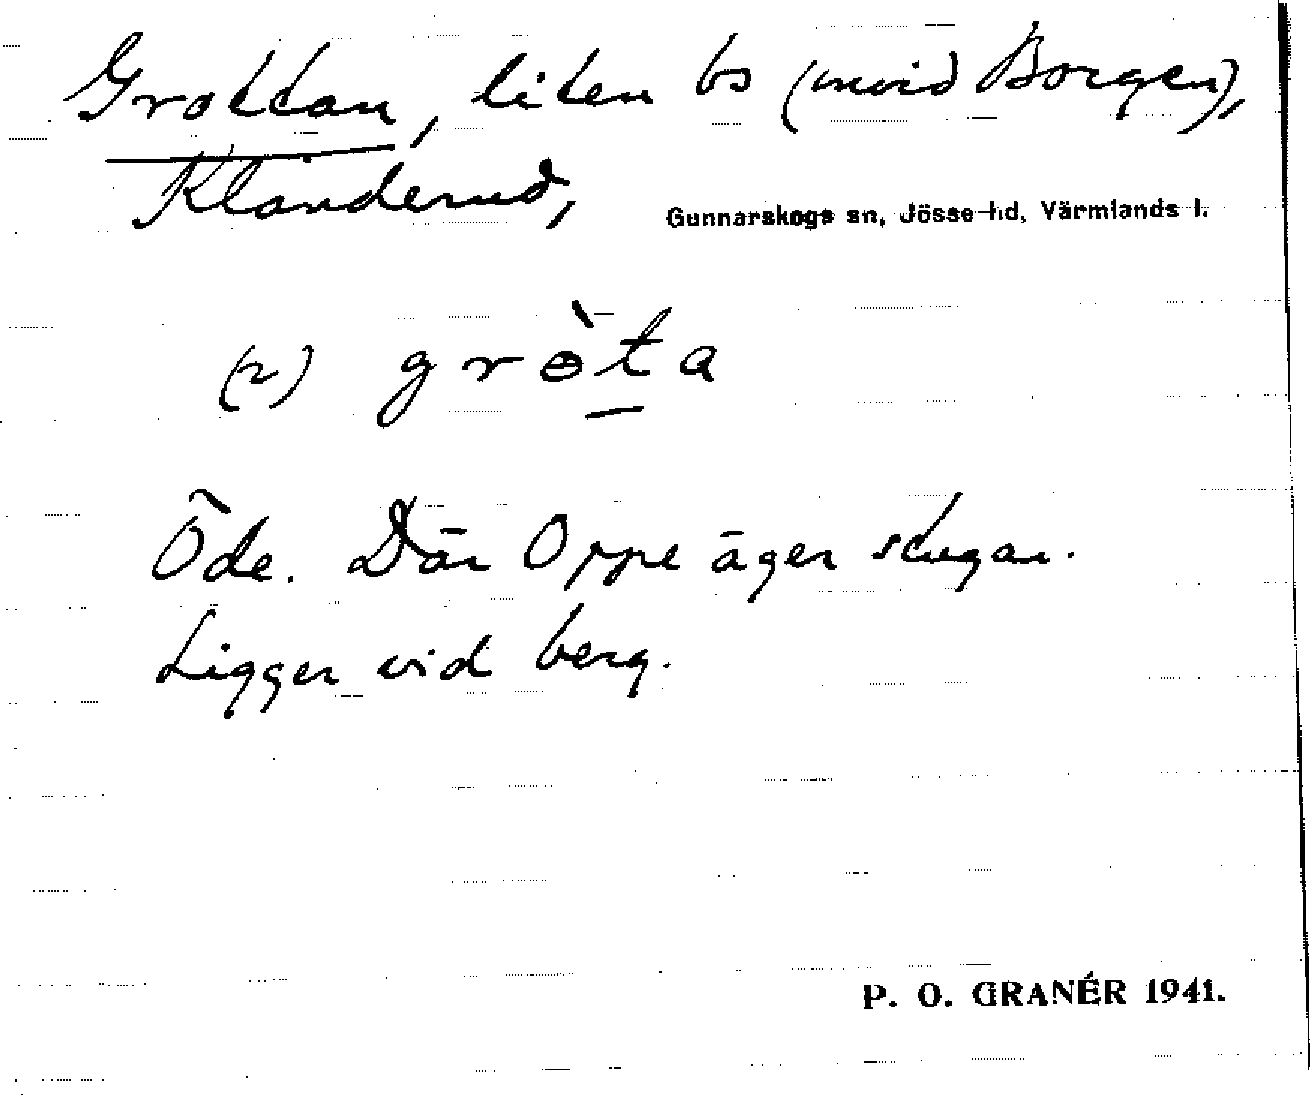 Grottan, liten bs (invid Borgen),
Klanderud,
Gunnarskogs sn, Jösse hd, Värmlands l.
(2) grɵ̀ta
Öde. Där Oppe äger stugan.
Ligger vid berg.
P. O. GRANÉR 1941.